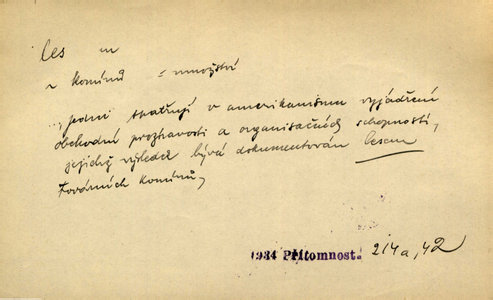 les m
~ komínů = množství
„jedni spatřují v amerikanismu vyjádření
obchodní prozíravosti a organisačních schopností,
jejichž výsledek bývá dokumentován lesem
továrních komínů,
1934 Přítomnost. 214a,42